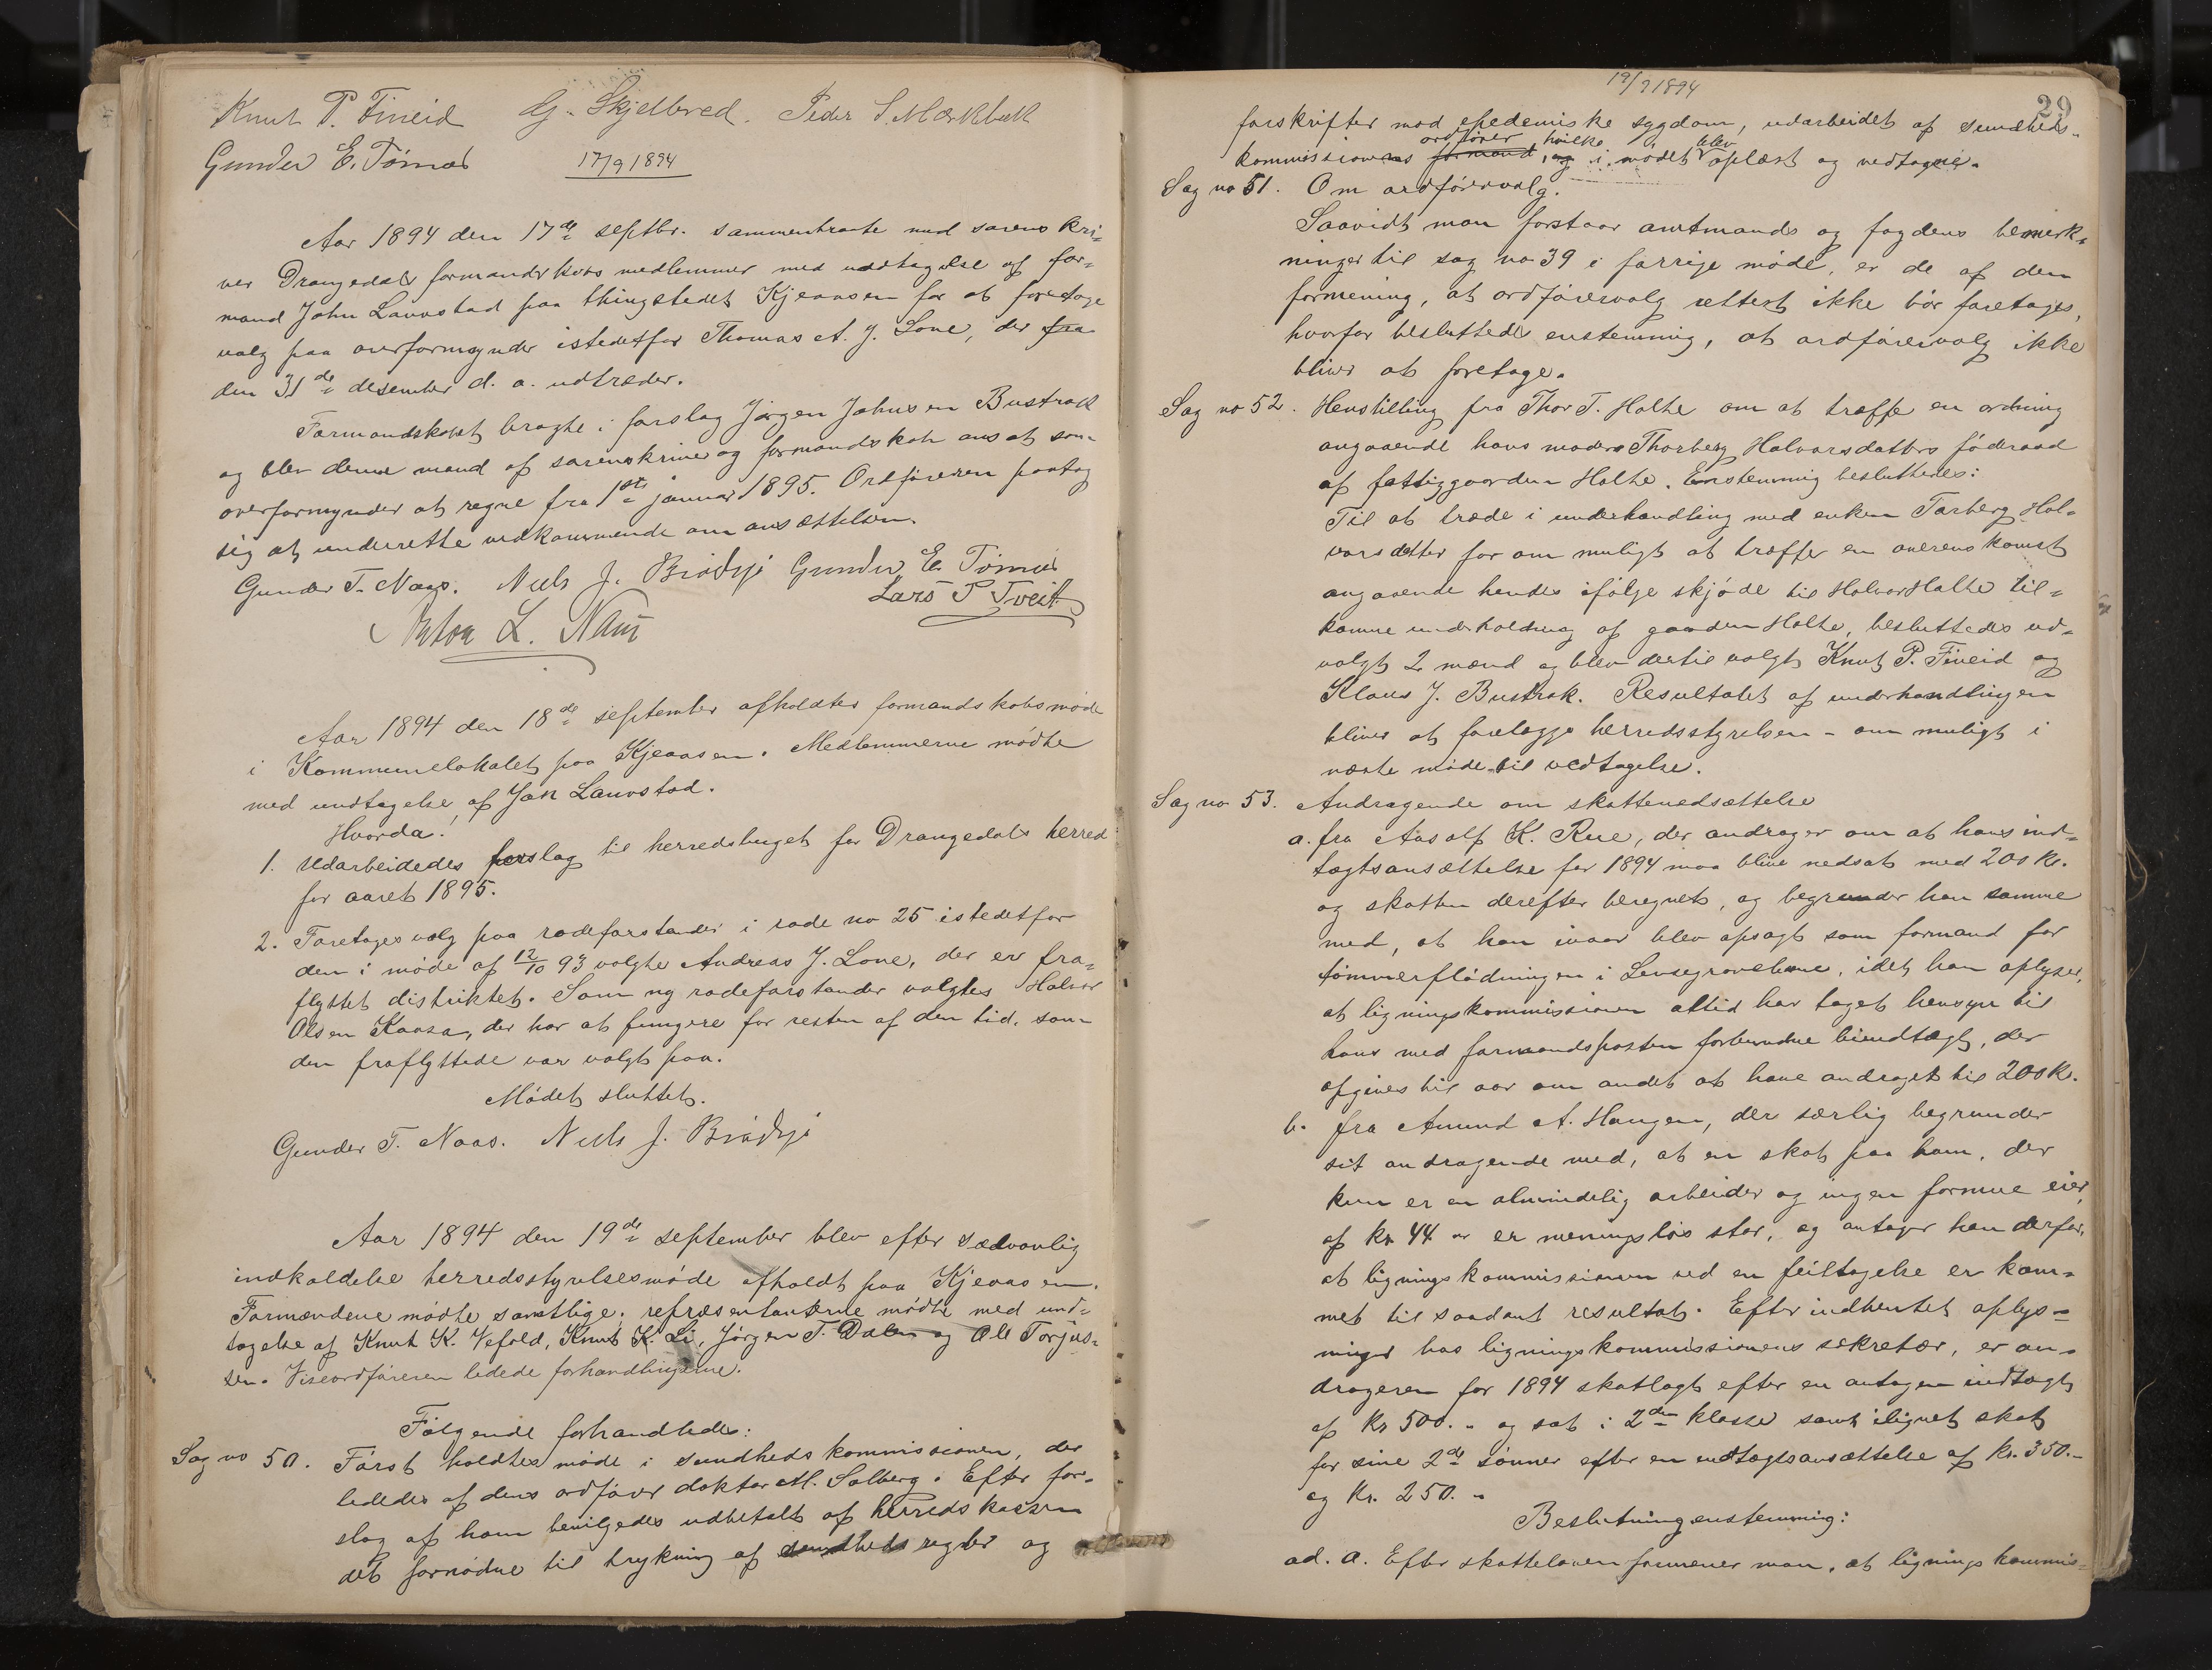 Knut P. Fineid G. Skjelbred. Peder S. Mærkebæk
Gunder E. Tømes 17/9 1894
Aar 1894 den 17de septbr. sammentraadte med sorenskri=
ver Drangedals formandskabs medlemmer med undtagelse af for=
mand John Lauvstad paa thingstedet Kjeaasen for at foretage
valg paa overformynder istedetfor Thomas A. J. Lone, der fra
den 31de desember d. a. udtræder.
Formandskabet bragte i forslag Jørgen Johnsen Bustrak
og blev denne mand af sorenskriver og formandskab ansat som
overformynder at regne fra 1ste januar 1895. Ordføreren paatog
sig at underrette vedkommende om ansættelsen.
Gunder T. Naas. Niels J. Brødsjø Gunder E. Tømes
Lars P Tveit
Anton L. Naas
Aar 1894 den 18de september afholdtes formandskabsmøde
i Kommunelokalet paa Kjeaasen. Medlemmerne mødte
med undtagelse af Jon Lauvstad.
Hvorda!
1. Udarbeidedes forslag til herredsbuget for Drangedals herred
for aaret 1895.
2. Foretoges valg paa rodeforstander i rode no 25 istedetfor
den i møde af 12/10 93 valgte Andreas J. Lone, der er fra=
flyttet distriktet. Som ny rodeforstander valgtes Halvor
Olsen Kaasa, der har at fungere for resten af den tid, som
den fraflyttede var valgt paa.
Mødet sluttet.
Gunder T. Naas. Niels J. Brødsjø
Aar 1894 den 19de september blev efter sædvanlig
indkaldelse herredsstyrelsesmøde afholdt paa Kjeaasen.
Formændene mødte samtlige, repræsentanterne mødte med und=
tagelse af Knut K. Vefald, Knut K. Li, Jørgen T. Dalen og Ole Torjus=
sen. Viseordføreren ledede forhandlingerne.
Følgende forhandledes:
Sag no 50. Først holdtes møde i sundhedskommissionen, der
lededes af dens ordfører doktor M. Solberg. Efter for=
slag af ham bevilgedes udbetalt af herredskassen
det fornødne til trykning af sundheds regler og
19/9 1894
29
forskrifter mod epedemiske sygdom, udarbeidet af sundheds=
ordfører hvilke blev
kommissionens formand, og i mødet oplæst og vedtagne.
Sag no 51. Om ordførervalg.
Saavidt man forstaar amtmands og fogdens bemærk=
ninger til sag no 39 i forrige møde, er de af den
formening, at ordførervalg rettest ikke bør foretages,
hvorfor besluttedes enstemmig, at ordførervalg ikke
bliver at foretage.
Sag no 52. Henstilling fra Thor T. Holte om at træffe en ordning
angaaende hans moders Thorberg Halvorsdatters føderaad
af fattiggaarden Holte. Enstemmig besluttedes:
Til at træde i underhandling med enken Torberg Hal=
vorsdatter for om muligt at træffe en overenskomst
angaaende hendes ifølge skjøde til Halvor Holte til=
komne underholdning af gaarden Holte, besluttedes ud=
valgt 2 mænd og blev dertil valgt Knut P. Fineid og
Klaus J. Bustrak. Resultatet af underhandlingen
bliver at forelægge herredsstyrelsen - om muligt i
næste møde til vedtagelse.
Sag no 53. Andragende om skattenedsættelse
a. fra Aasolf K. Rue, der andrager om at hans ind=
tægtsansættelse for 1894 maa blive nedsat med 200 kr.
og skatten derefter beregnet, og begrunder han samme
med, at han ivaar blev opsagt som formand for
tømmerflødningen i Lensegrovelven, idet han oplyser,
at ligningskommissionen altid har taget hensyn til
hans med formandsposten forbundne biindtægt, der
opgives til aar om andet at have andraget til 200 kr.
b. fra Amund A. Haugen, der særlig begrunder
sit andragende med, at en skat paa ham, der
kun er en almindelig arbeider og ingen formue eier,
af kr 44 er meningsløs stor, og antager han derfor,
at ligningskommissionen ved en feiltagelse er kom=
met til saadant resultat. Efter indhentet oplys=
ninger hos ligningskommissionens sekretær, er an=
drageren for 1894 skatlagt efter en antagen indtægt
af kr 500.- og sat i 2den klasse samt ilignet skat
for sine 2de sønner efter en indtægtsansættelse af kr. 350.-
og kr. 250.-
Beslutning enstemmig:
ad. a. Efter skatteloven formener man, at ligningskommis=